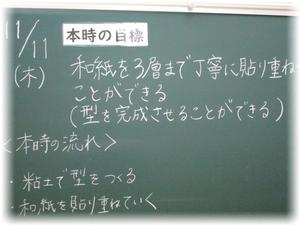 11/11
(木)
本時の目標
和紙を3層まで丁寧に貼り重ね
ことができる
(型を完成させることができる)
<本時の流れ>
・粘土で型をつくる
・和紙を貼り重ねていく